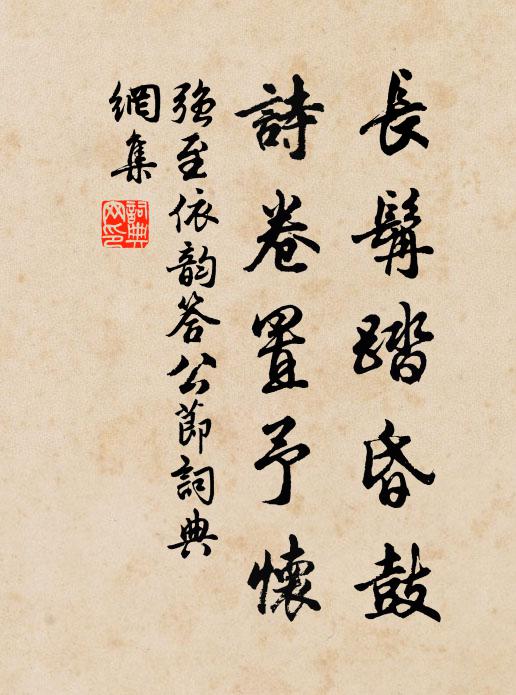 長髯踏昏鼓
詩卷置予懷
強至依韵答公節詞典
網集
詞典
网印